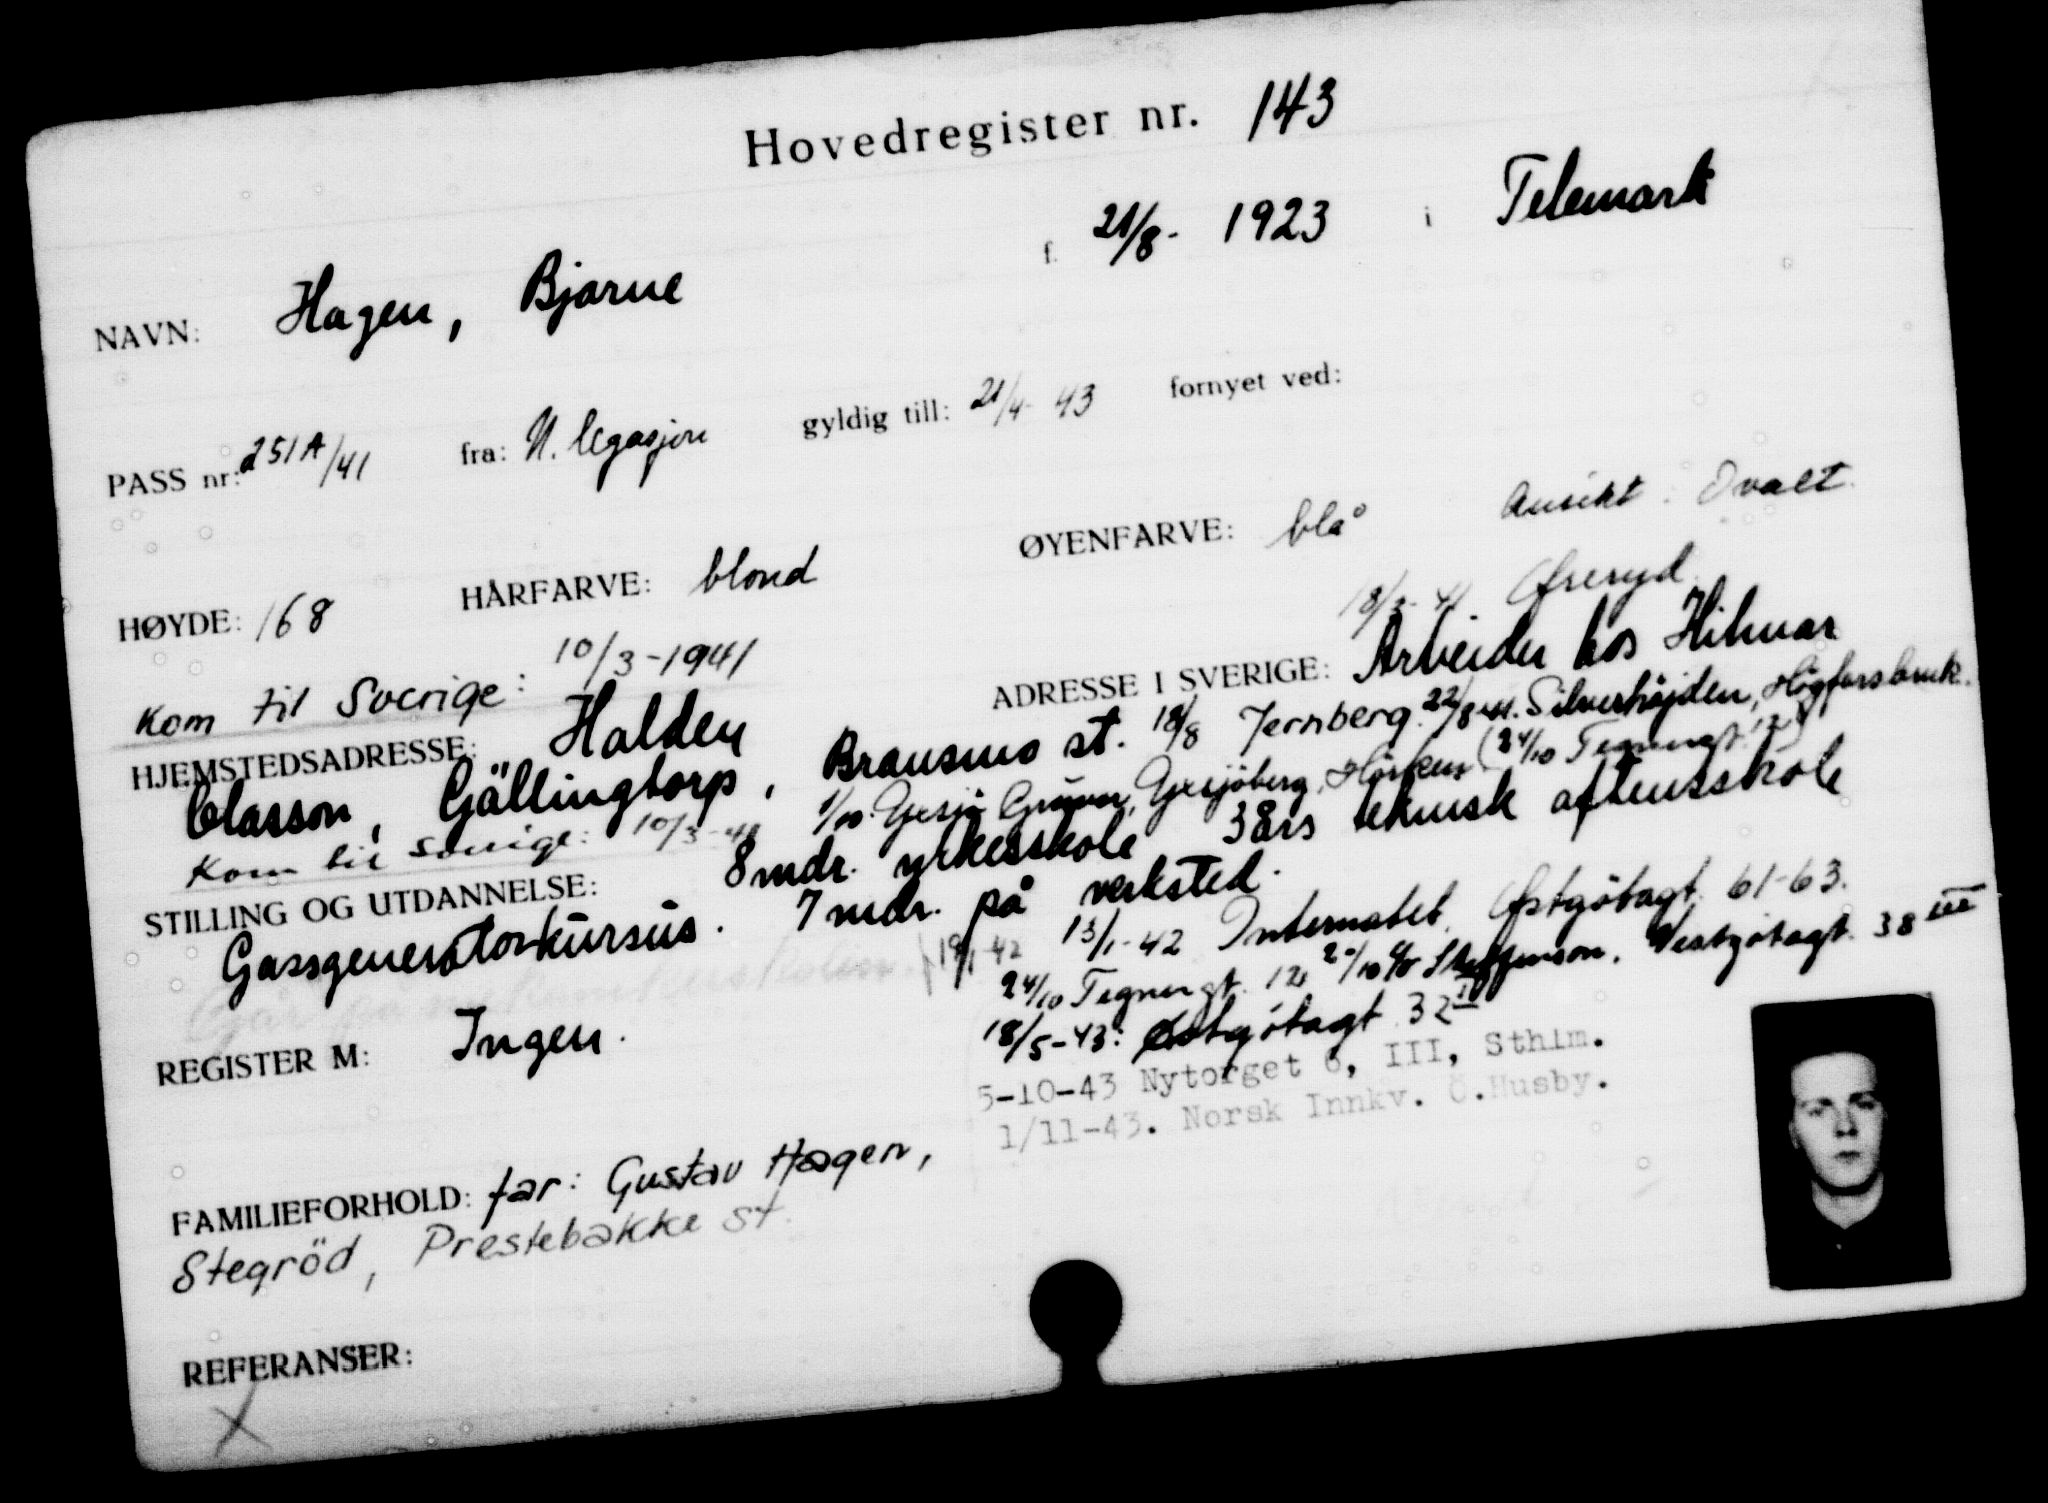 Hovedregister nr. 143
NAVN: Hagen, Bjarne f. 21/8- 1923 i Telemark
PASS nr: 251A/41 fra: N. legasjon gyldig till: 21/4- 43 fornyet ved:
HØYDE: 168 HÅRFARVE: blond ØYENFARVE: blå Ansikt: Ovalt.
18/3-41 Øreryd
Kom til Sverige: 10/3-1941
HJEMSTEDSADRESSE: Halden ADRESSE I SVERIGE: Arbeider hos Hilmar
Claeson, Gällingtorp, Bransmo st. 18/8 Jernberg. 22/8-41. Silverhöjden, Högforsbruk.
Kom til Sverige: 10/3-41 1/10. Gruver, Gesjöberg, Hörken (24/10 Tegnergt. 12)
STILLING OG UTDANNELSE: 8 mdr. yrkesskole 3 års teknisk aftensskole
Gassgeneratorkursus. 7 mdr. på verksted.
19/1-42 13/1-42 Internatet, Østgötagt. 61-63.
24/10 Tegnergt. 12, 20/10 c/o Steffenson, Vestgötagt. 38 III
REGISTER M: Ingen. 18/5-43: Østgötagt 32 II
5-10-43 Nytorget 6, III, Sthlm.
1/11-43. Norsk Innkv. Ö.Husby.
FAMILIEFORHOLD: far: Gustav Hagen,
Stegröd, Prestebakke st.
REFERANSER:
X